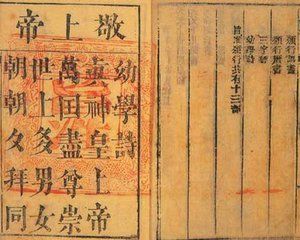 頒行詔書
頒行曆書
三字經
幼學詩
旨准頒行共有十三部
敬上帝
幼學詩
真神皇上帝
萬国盡尊崇
世上多男女
朝朝夕拜同